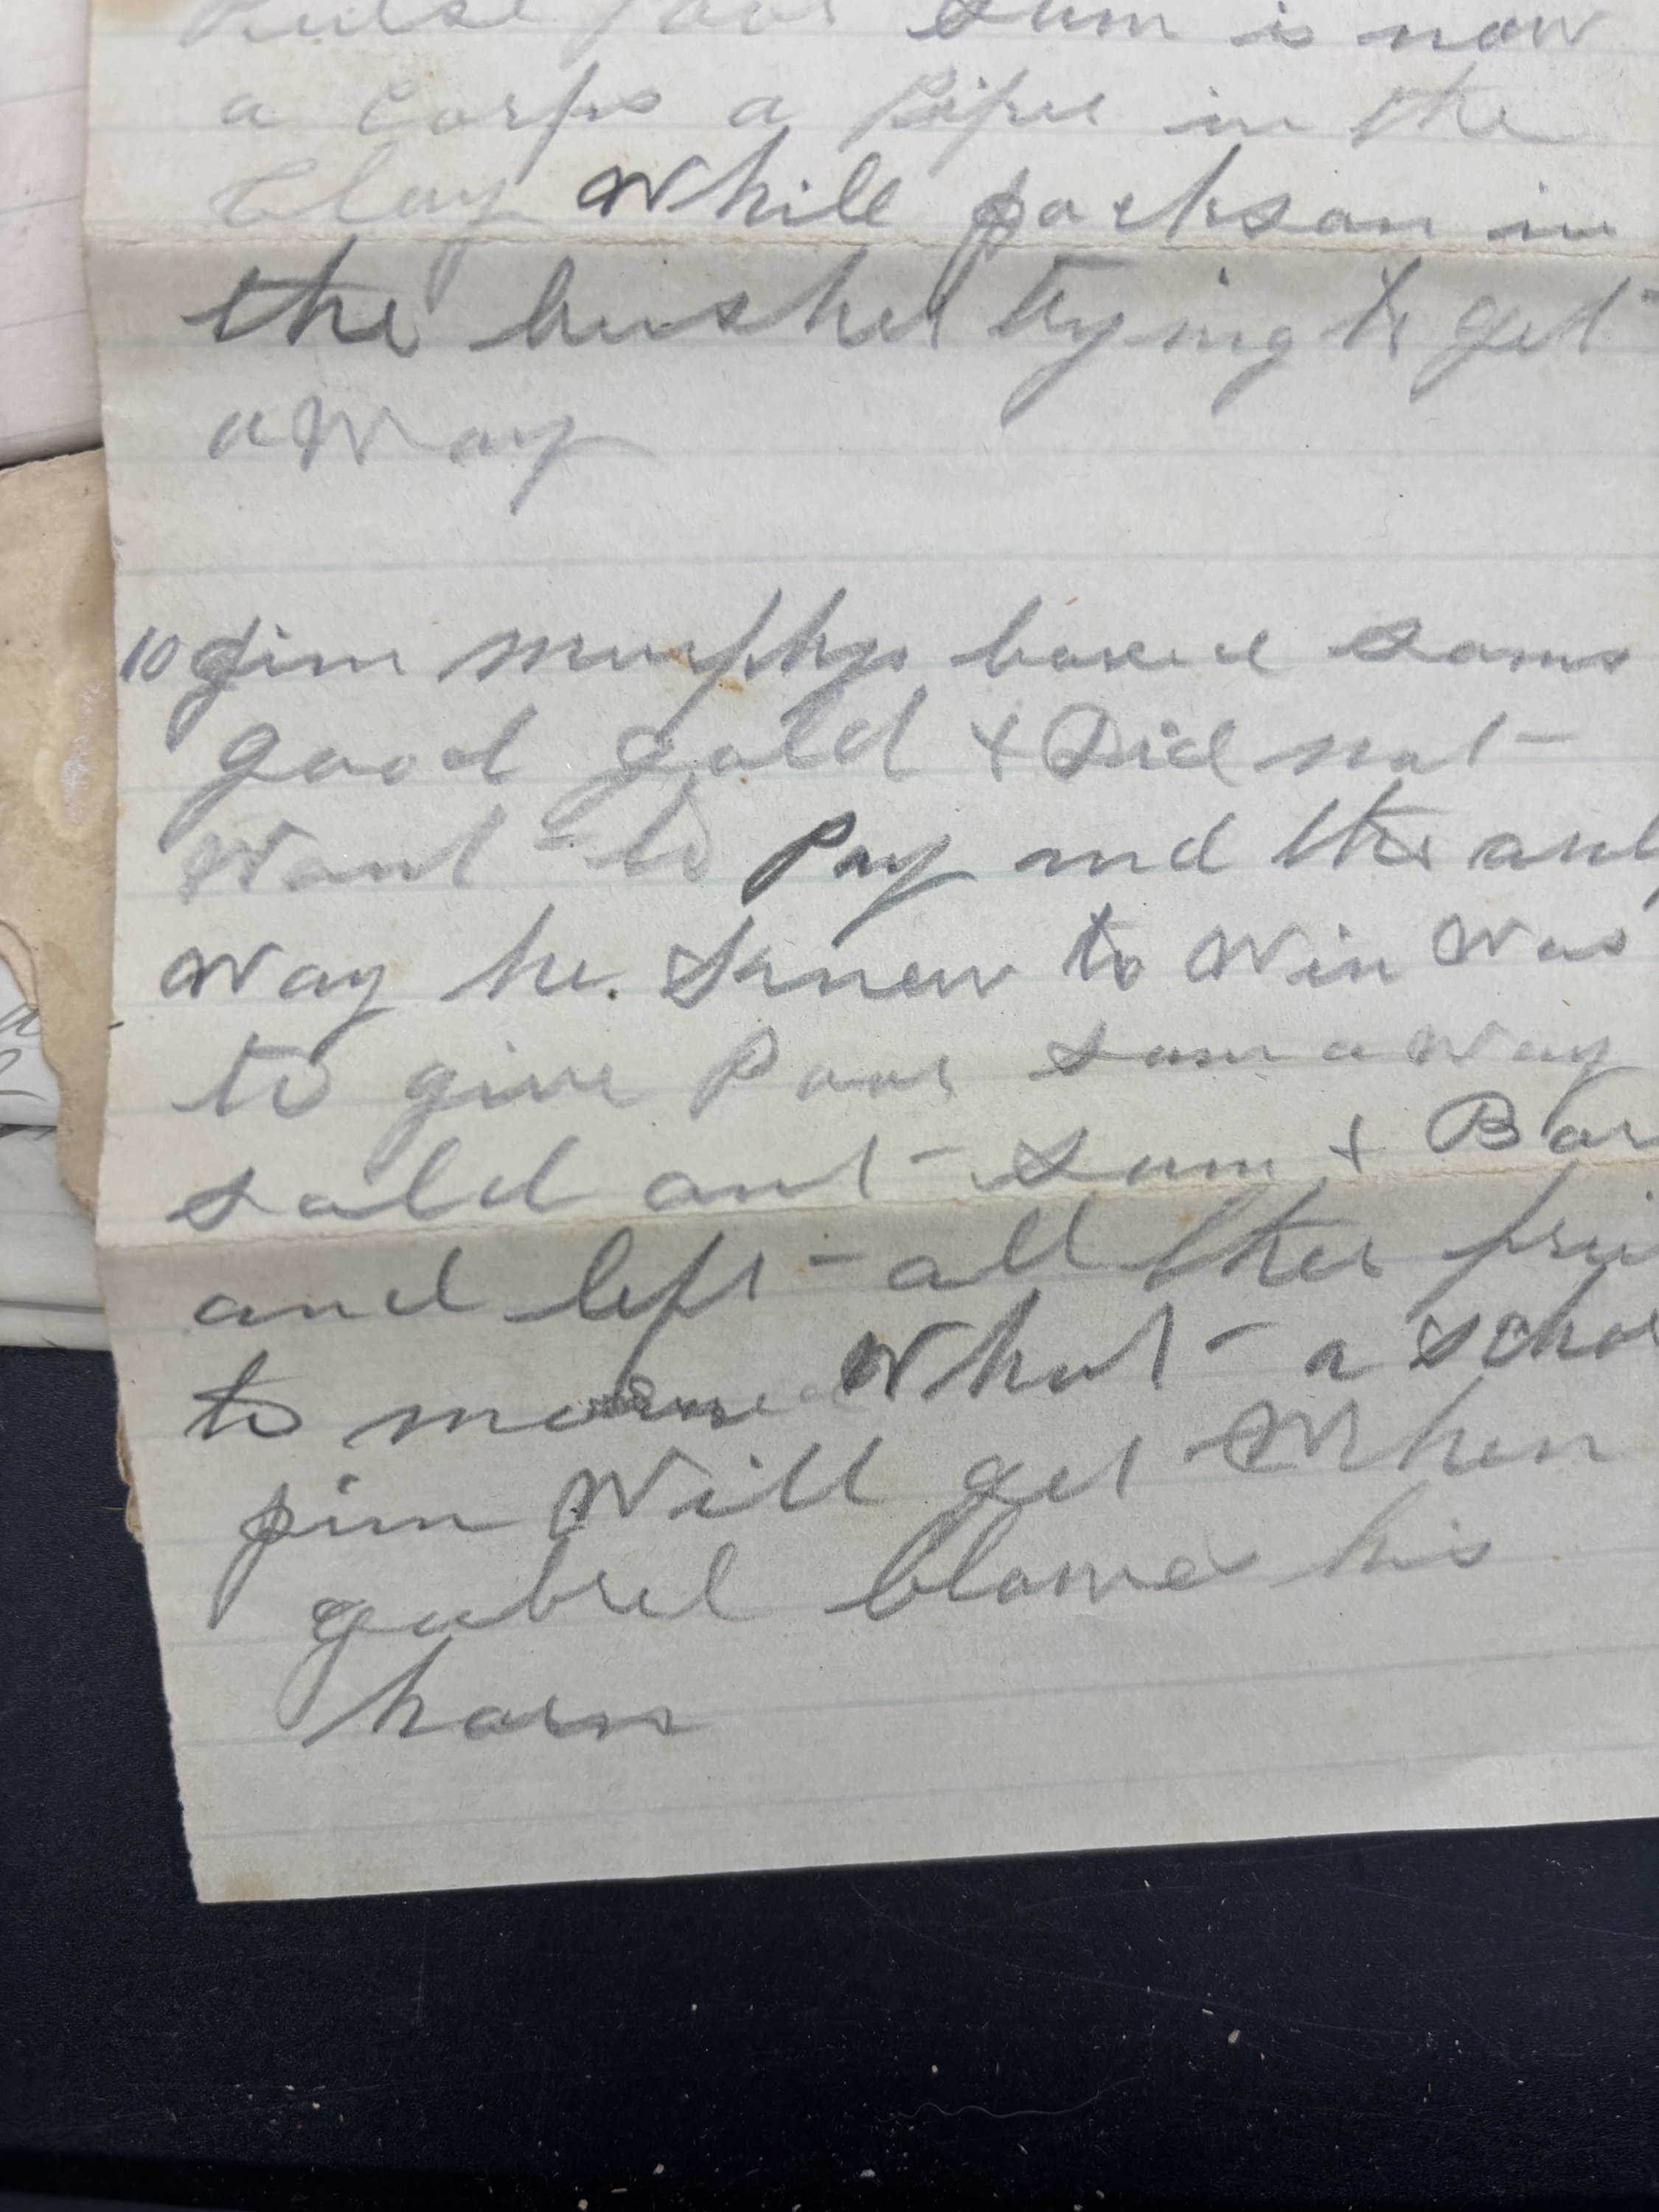 Poor Sam is now
a Corps a Pipes in the
Clay While jackson in
the bushes trying to get
a Way
10 Jim murphy boxed Sams
good gold + Did not
Want to Pay and the only
Way he Knew to Win Was
to give Poor Sam a Way
sold out Sam + Bar
and left all ther frie
to morne What a schor
jim Will get When
gabrel blowes his
horn